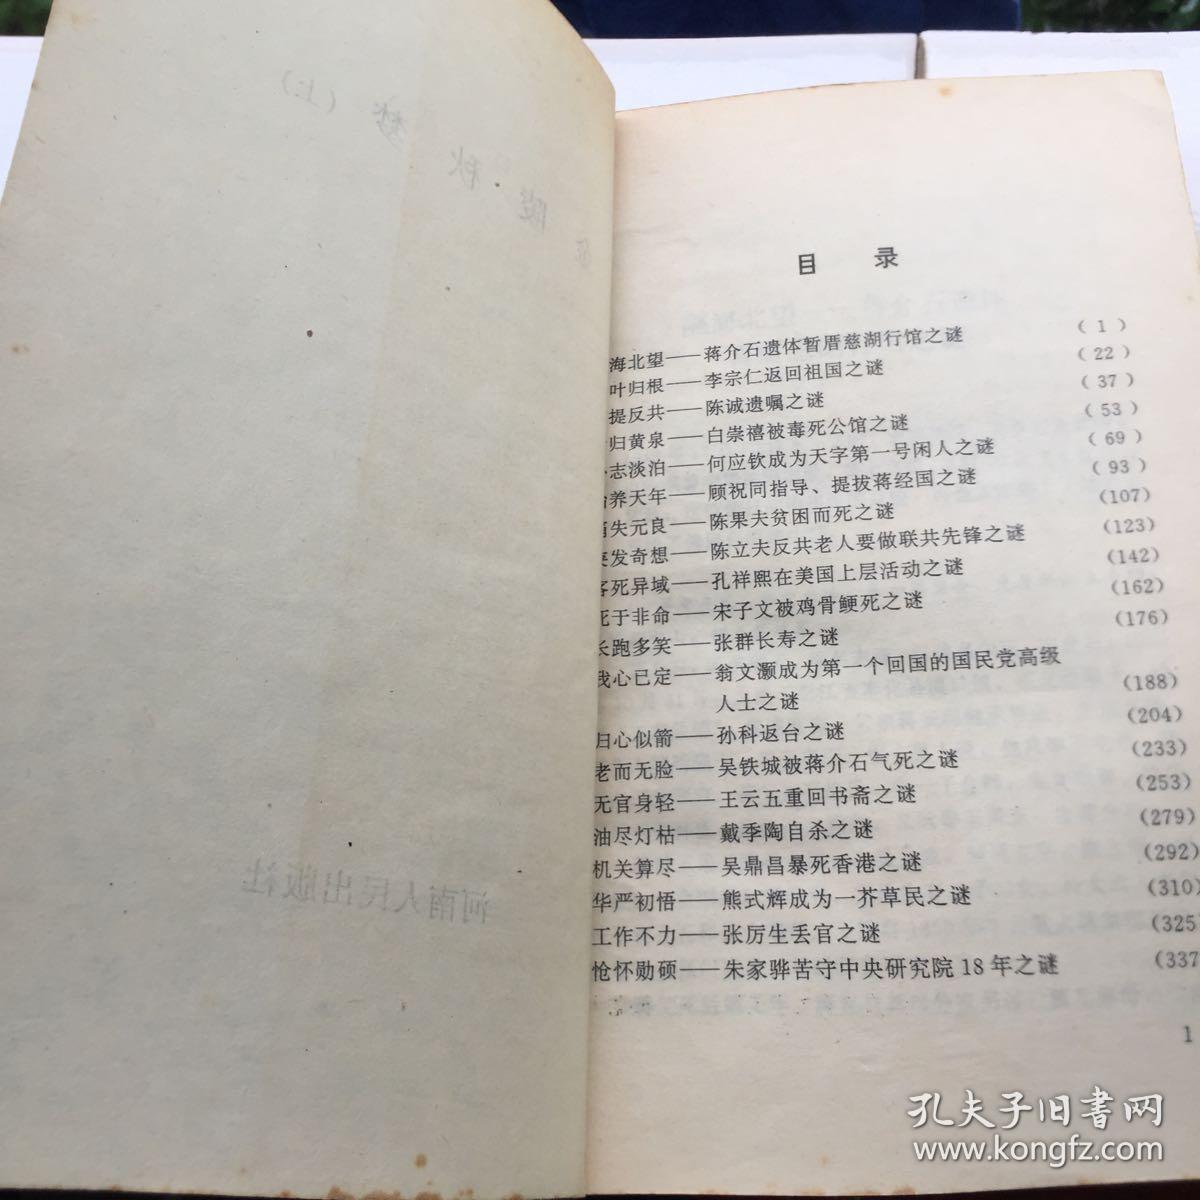 (上)
梦
秋
陵
河南人民出版社
目 录
海北望——蒋介石遗体暂厝慈湖行馆之谜 (1)
叶归根——李宗仁返回祖国之谜 (22)
提反共——陈诚遗嘱之谜 (37)
归黄泉——白崇禧被毒死公馆之谜 (53)
志淡泊——何应钦成为天字第一号闲人之谜 (69)
养天年——顾祝同指导、提拔蒋经国之谜 (93)
失元良——陈果夫贫困而死之谜 (107)
突发奇想——陈立夫反共老人要做联共先锋之谜 (123)
客死异域——孔祥熙在美国上层活动之谜 (142)
死于非命——宋子文被鸡骨鲠死之谜 (162)
长跑多笑——张群长寿之谜 (176)
我心已定——翁文灏成为第一个回国的国民党高级
人士之谜 (188)
归心似箭——孙科返台之谜 (204)
老而无脸——吴铁城被蒋介石气死之谜 (233)
无官身轻——王云五重回书斋之谜 (253)
油尽灯枯——戴季陶自杀之谜 (279)
机关算尽——吴鼎昌暴死香港之谜 (292)
华严初悟——熊式辉成为一芥草民之谜 (310)
工作不力——张厉生丢官之谜 (325)
怆怀勋硕——朱家骅苦守中央研究院18年之谜 (337
1
孔夫子旧书网
www.kongfz.com